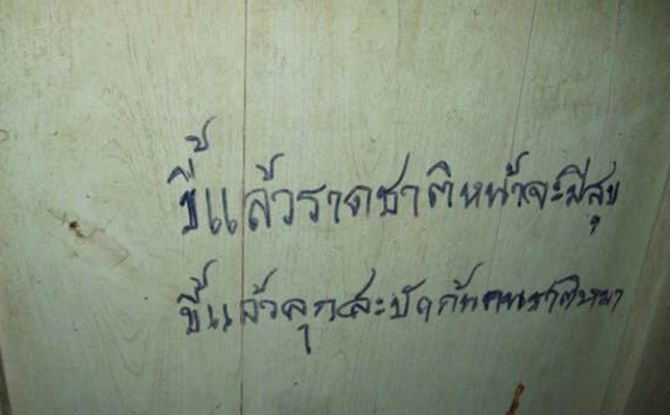 ขี้แล้วราดชาติหน้าจะมีสุข
ขี้แล้วลุกสะบัดก้นคนชาติหมา